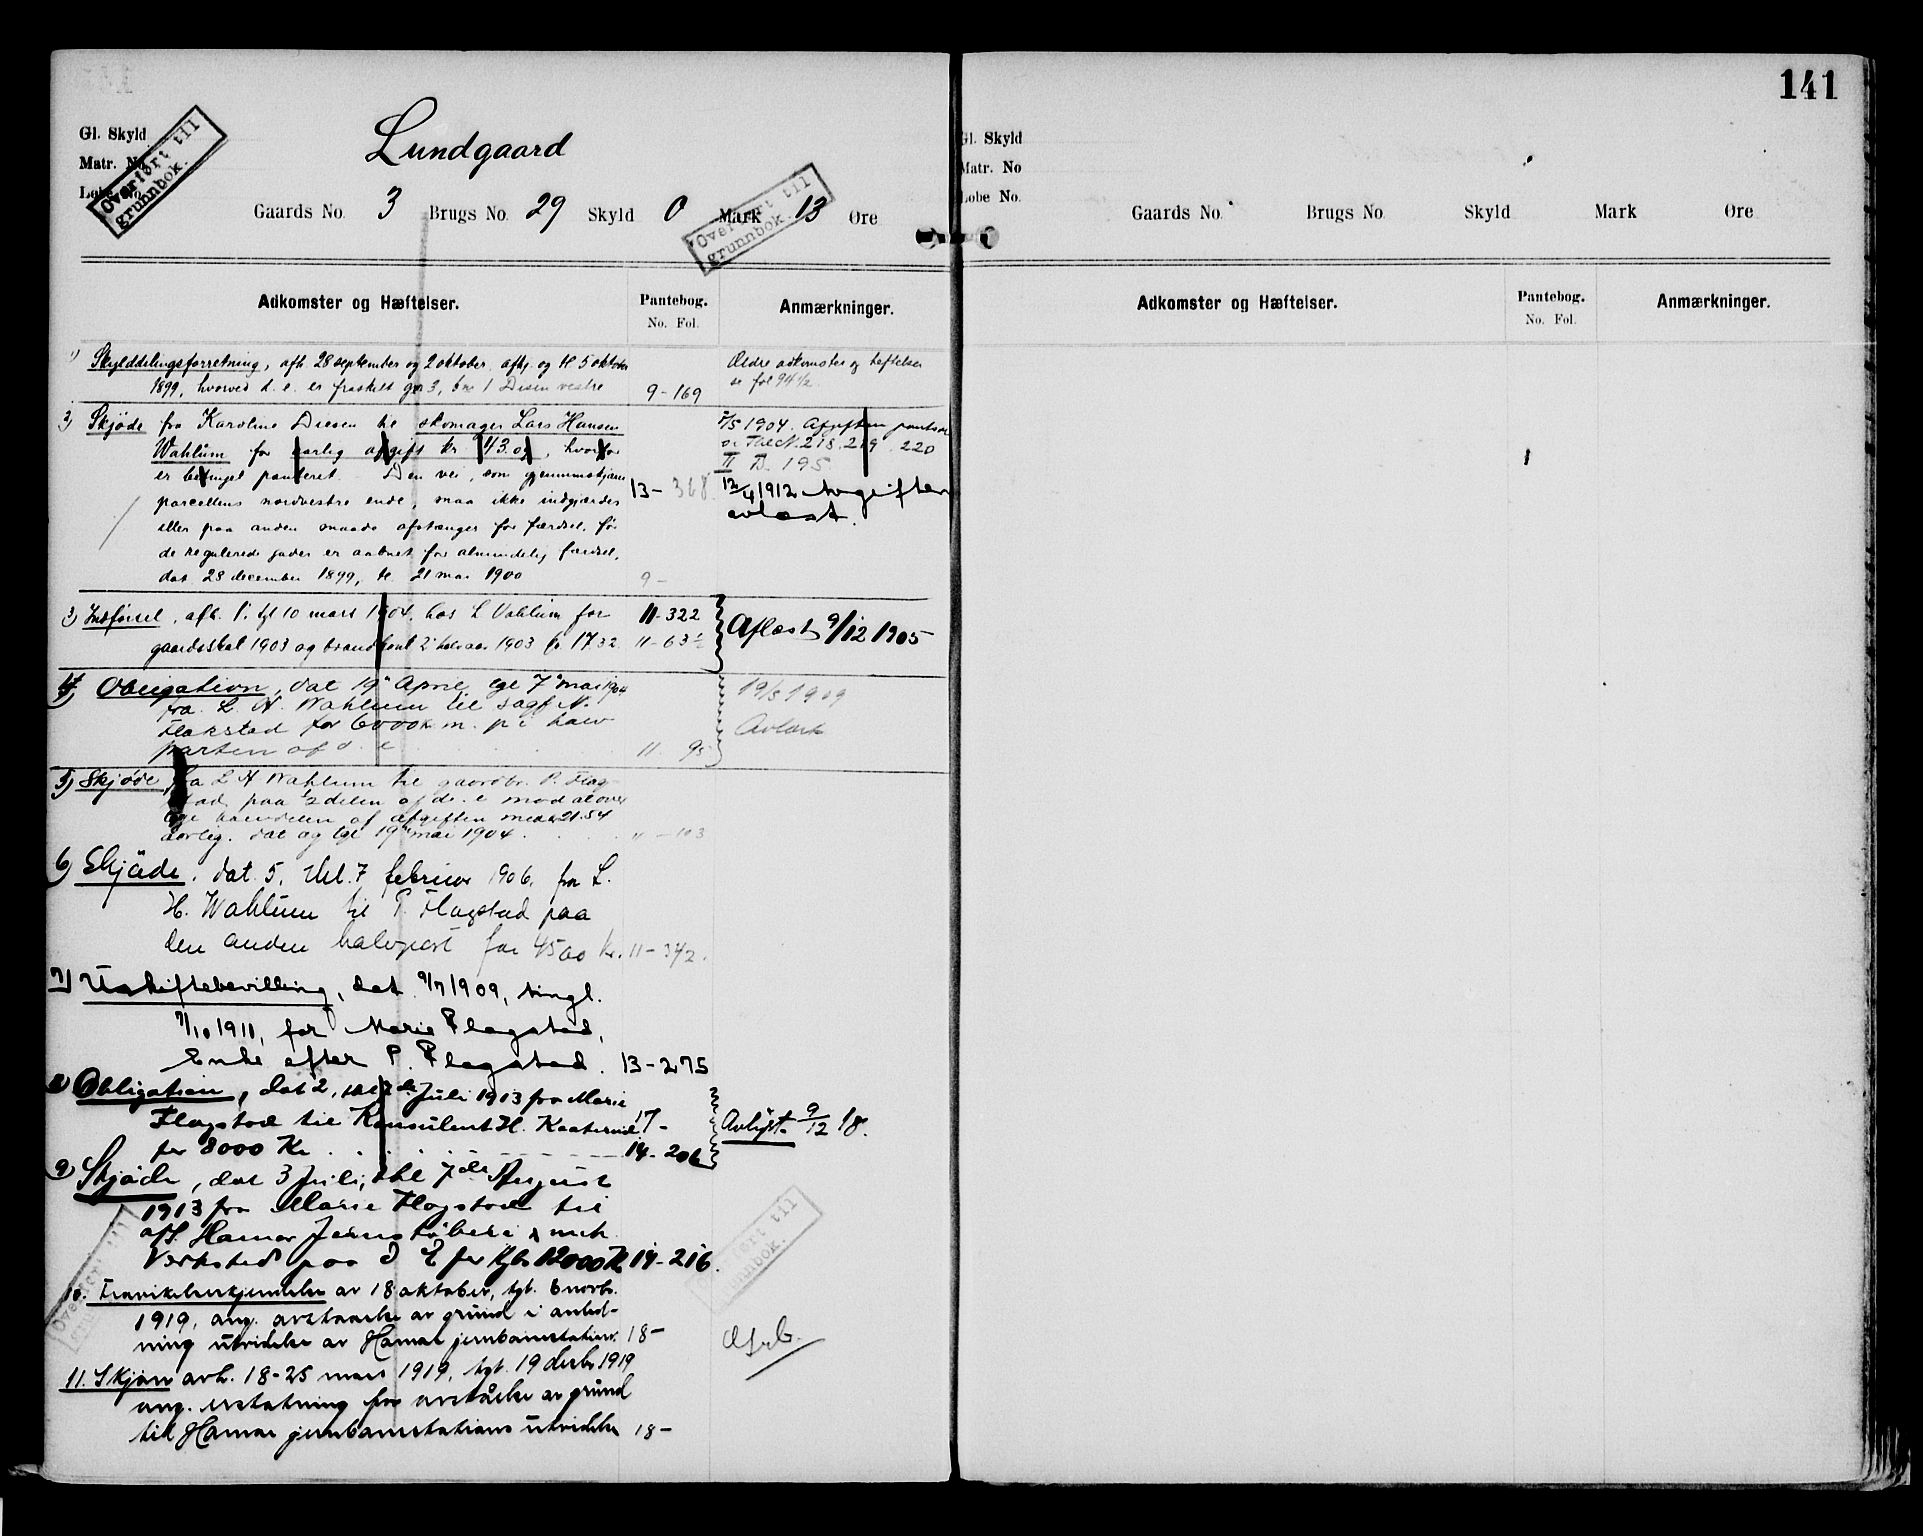 141
Gl. Skyld
Matr. No
Løbe No.
Overført til
grunnbok.
Lundgaard
Gaards No. 3 Brugs No. 29 Skyld 0 Mark 13 Øre
Overført til
grunnbok.
Adkomster og Hæftelser.
Pantebog.
No. Fol.
Anmærkninger.
1) Skylddelingsforretning, afh. 28 september og 2 oktober, afhj. og tl. 5 oktober
1899, hvorved d. e. er fraskilt gn 3, bn 1 Disen vestre 9-169
Ældre adkomster og heftelser
se fol 94 1/2.
2) Skjøde fra Karoline Diesen til skomager Lars Hansen
Wahlum for aarlig afgift kr. 43.07, hvorfor
er betinget panteret. Den vei, som gjennemskjærer
parcellens nordvestre ende, maa ikke indgjærdes
eller paa anden maade afstænges for færdsel, før
de regulerede gader er aabnet for almindelig færdsel,
dat 28 december 1899, tl. 21 mai 1900 9-
13-368.
5/5 1904. Afgiften pantsat
se Fol. N. 218. 219. 220
II B. 195
12/4 1912 Avgiften
avlæst.
3) Indførsel, afh. tgl 10 mars 1904, hos L Vahlum for 11-322
gaardsskat 1903 og brandkont 2 halvaar 1903 kr. 17.32. 11-63
Aflæst 9/12 1905
4) Obligation, dat 19 April tgl 7 mai 1904
fra L. H. Wahlum til sagf. N.
Flakstad for 6000 k m. p i halv
parten af d. e 11 95
19/5 1909
Avlæst
5) Skjøde fra L H Wahlum til gaardbr. P. Flag-
stad paa 1/2 delen af d. e mod at over
tage halvdelen af afgiften med kr 21.54
aarlig. dat og tgl 19 mai 1904. " - 103
6) Skjøde, dat. 5, thl. 7 februar 1906, fra L.
H. Wahlum til P. Flagstad paa
den anden halvpart for 4500 kr. 11-342.
7) Uskiftebevilling, dat. 9/7 1909, tingl.
7/10 1911, for Marie Flagstad,
Enke efter P. Flagstad. 13-275
8) Obligation, dat 2, tht 7de Juli 1913 fra Marie
Flagstad til Konsulent H. Kaaterud 17-
for 8000 Kr. 14-206
Avlyst 9/12 18.
9) Skjøde, dat 3 Juli, thl 7de August
1913 fra Marie Flagstad til
A/S. Hamar Jernstøberi & meh
Verksted paa D E for kjbs 12000 Kr 14-216.
10. Fravikelseskjendelse av 18 oktober, tgl. 6 novbr.
1919, ang. avstaaelse av grund i anled-
ning utvidelse av Hamar jernbanestation. 18-
11. Skjøn avh. 18-25 mars 1919, tgl. 19 decbr 1919
ang. erstatning for avståelse av grund
til Hamar jernbanestations utvidelse 18-
Overført til
grunnbok.
Overført til
grunnbok.
Gl. Skyld
Matr. No
Løbe No.
Gaards No. Brugs No. Skyld Mark Øre
Adkomster og Hæftelser.
Pantebog.
No. Fol.
Anmærkninger.